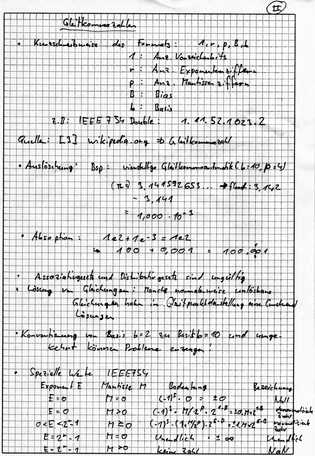 II
Gleitkommazahlen
• Kurzschreibweise des Formats: 1, r, p, B, b
1 : Anz. Vorzeichenbits
r : Anz. Exponentenziffern
p : Anz. Mantissenziffern
B : Bias
b : Basis
z.B: IEEE754 Double: 1.11.52.1023.2
Quelle: [3] wikipedia.org ⇒ Gleitkommazahl
• Auslöschung: Bsp: vierstellige Gleitkommaarithmetik (b=10, p=4)
3,141592653... → 3,142
- 3,141
= 1,000 · 10⁻³
• Absorption: 1e2+1e-3 = 1e2
↳ 100 + 0,001 = 100,001
• Assoziativgesetz und Distributivgesetz sind ungültig
• Lösung von Gleichungen: Manche normalerweise unlösbare
Gleichungen haben in Gleitpunktdarstellung eine
Lösungen
• Konvertierung von Basis b=2 zu Basis b=10 und umge-
kehrt können Probleme erzeugen
• Spezielle Werte IEEE754
Exponent E Mantisse M Bedeutung Bezeichnung
E=0 M=0 (-1)ˢ · 0 = ±0 Null
E=0 M>0
0<E<2ʳ-1 M≥0
E=2ʳ-1 M=0 Unendlich ±∞ Unendlich
E=2ʳ-1 M>0 keine Zahl NaN